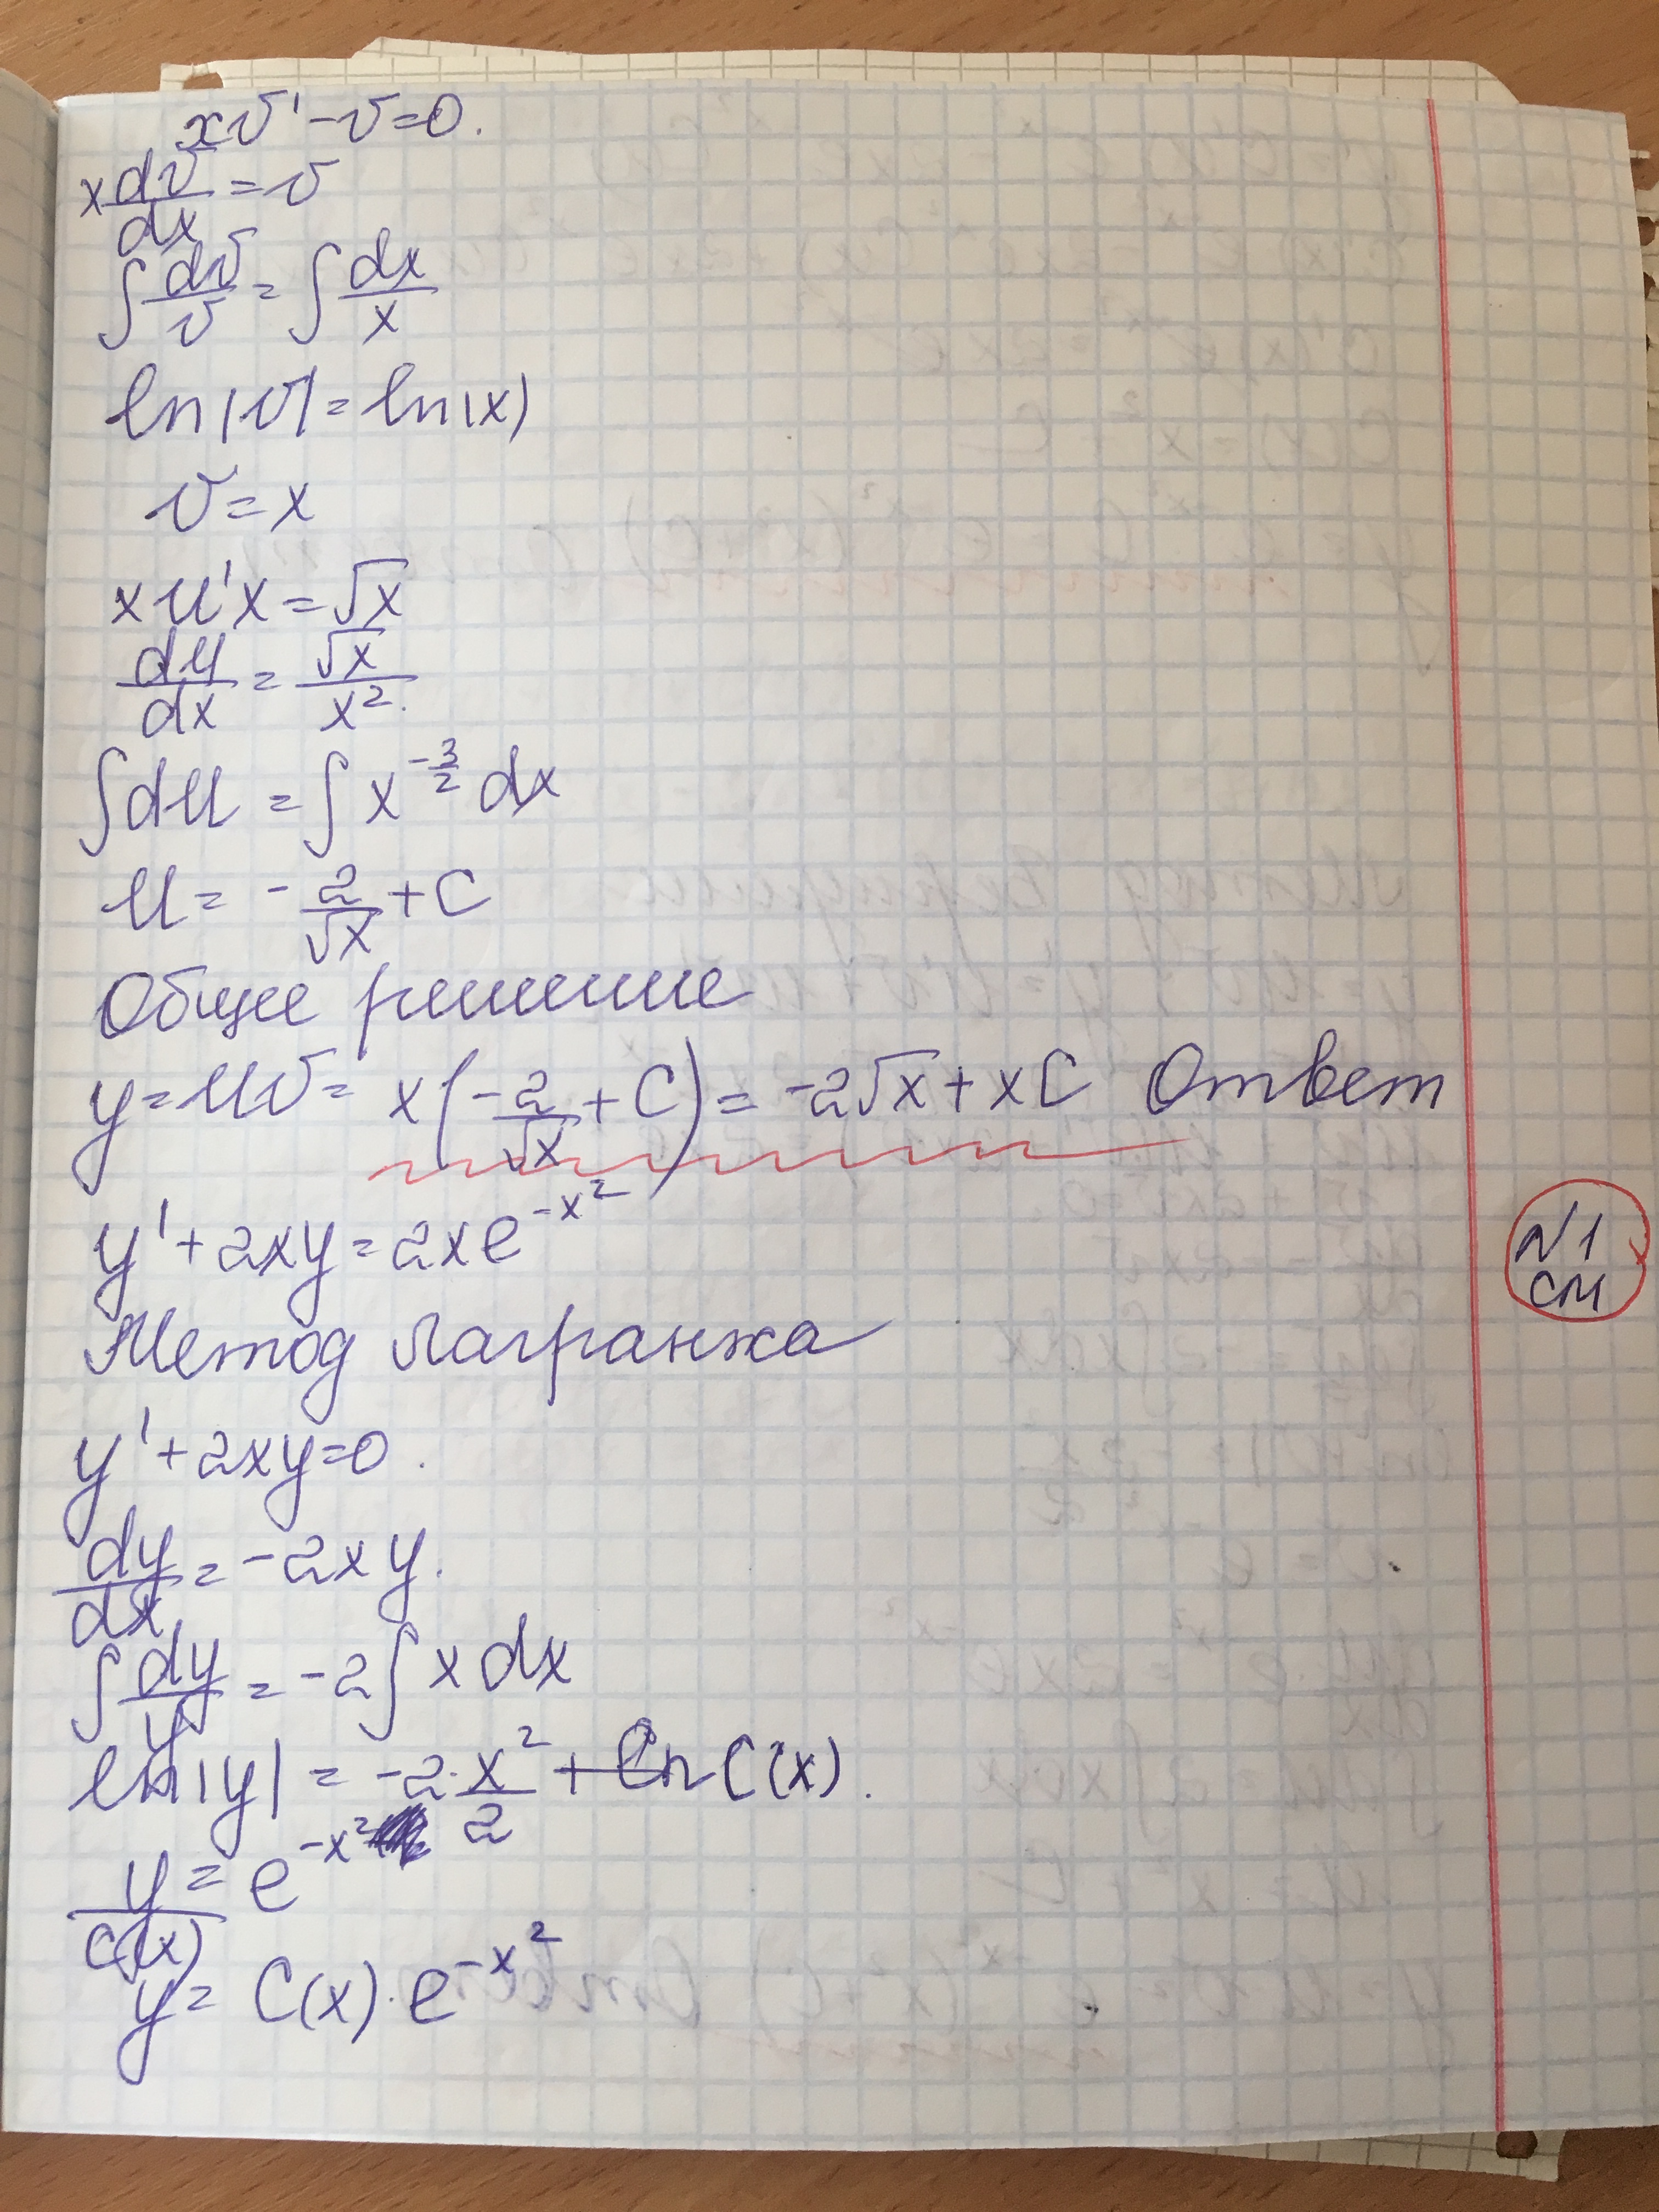 xv' - v = 0.
x dv/dx = v
∫ dv/v = ∫ dx/x
ln|v| = ln|x|
v = x
x u' x = √x
du/dx = √x/x².
∫ du = ∫ x^(-3/2) dx
u = -2/√x + C
Общее решение
y = uv = x(-2/√x + C) = -2√x + xC Ответ
y' + 2xy = 2xe^(-x²)
N1
см
Метод Лагранжа
y' + 2xy = 0.
dy/dx = -2xy.
∫ dy/y = -2∫ x dx
ln|y| = -2·x²/2 + ln C(x).
y/C(x) = e^(-x²)
y = C(x)·e^(-x²)